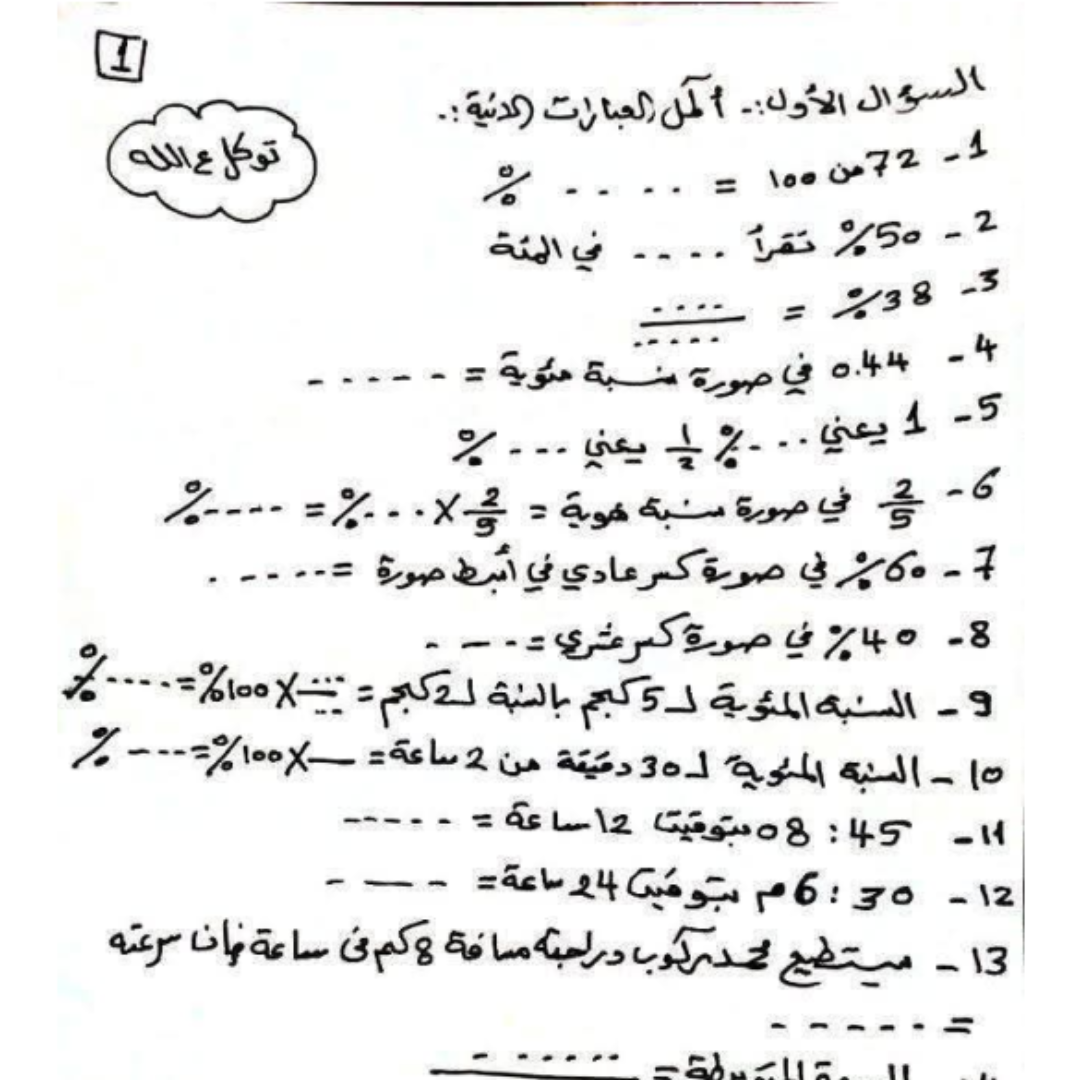 1
السؤال الأول:- أكمل العبارات الآتية:.
توكل ع الله
1- 72 من 100 = .... %
2- 50% تقرأ .... في المئة
3- 38% = ..../.....
4- 0.44 في صورة نسبة مئوية = -----
5- 1 يعني ...% 1/2 يعني ...%
6- 2/5 في صورة نسبة مئوية = 2/5 × ...% = ----%
7- 60% في صورة كسر عادي في أبسط صورة = -----
8- 40% في صورة كسر عشري = ----
9- النسبة المئوية لـ 5 كجم بالنسبة لـ 2 كجم = .../... × 100% = ----%
10- النسبة المئوية لـ 30 دقيقة من 2 ساعة = — × 100% = ----%
11- 08:45 بتوقيت 12 ساعة = -----
12- 6:30 م بتوقيت 24 ساعة = ----
13- يستطيع محمد ركوب دراجته مسافة 8 كم في ساعة فإن سرعته
= -----